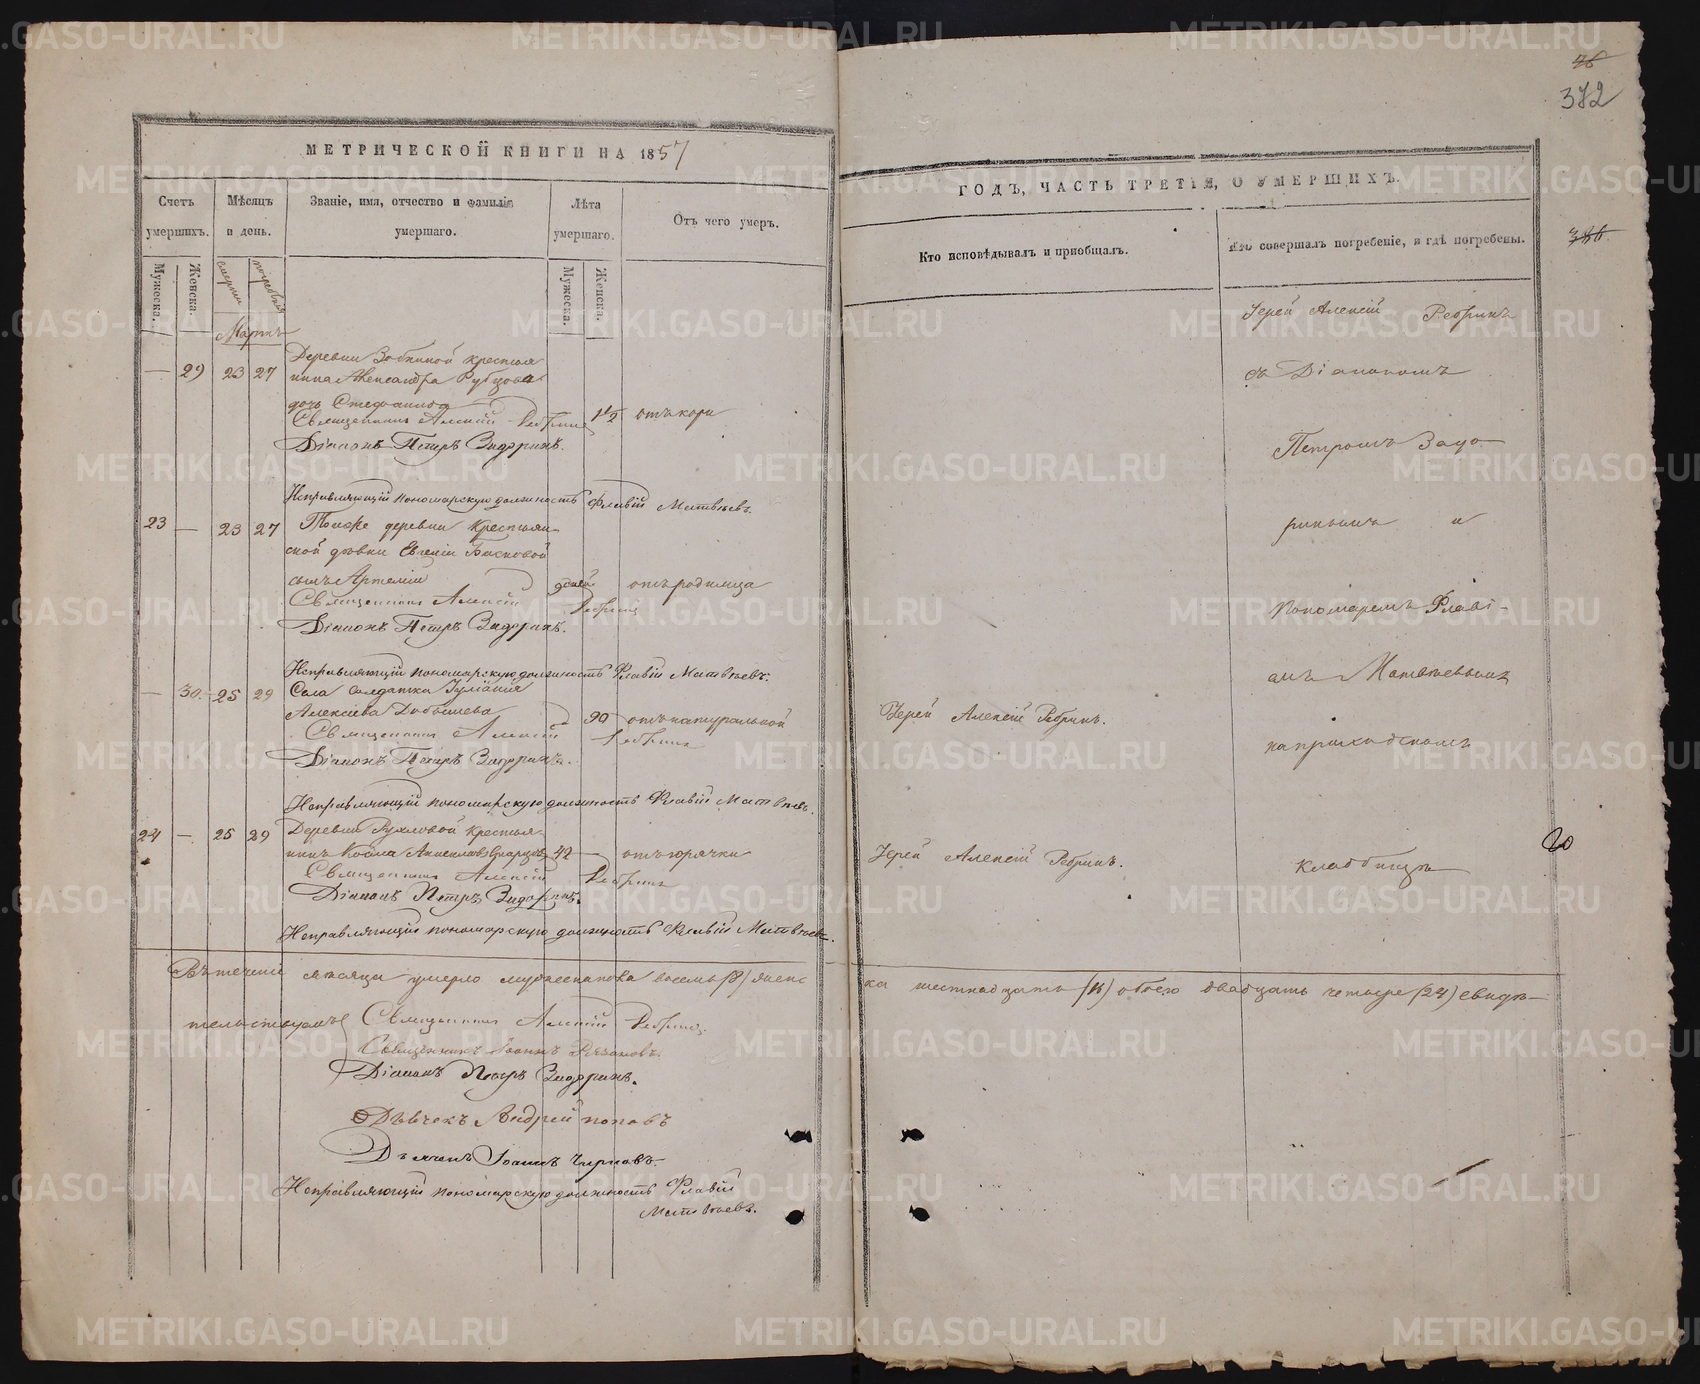 МЕТРИЧЕСКОЙ КНИГИ НА 1857
Счетъ умершихъ.
Мѣсяцъ и день.
Званіе, имя, отчество и фамилія умершаго.
Лѣта умершаго.
Отъ чего умеръ.
Мужеска.
Женска.
смерти
погребенія
Мужеска.
Женска.
Мартъ
— 29 23 27
Деревни Зобниной крестья
нина Александра Рубцова
дочь Стефанида
1/2 отъ кори
Священникъ Алексій Ребринъ
Діаконъ Петръ Задоринъ.
Исправляющій пономарскую должность Флавій Матвѣевъ.
23 — 23 27
Той же деревни крестьян
ской дѣвки Евгеніи
сынъ Артемій
9 дней отъ родимца
Священникъ Алексій Ребринъ
Діаконъ Петръ Задоринъ.
Исправляющій пономарскую должность Флавій Матвѣевъ.
— 30 25 29
Села солдатка Іуліанія
Алексѣева
90 отъ натуральной
Священникъ Алексій Ребринъ
Діаконъ Петръ Задоринъ.
Исправляющій пономарскую должность Флавій Матвѣевъ.
24 — 25 29
Деревни Рухловой крестья
нинъ Косма
42 — отъ горячки
Священникъ Алексій Ребринъ
Діаконъ Петръ Задоринъ.
Исправляющій пономарскую должность Флавій Матвѣевъ.
Въ теченіи мѣсяца умерло мужескаго восемь (8) женс
тельствуемъ
Священникъ Алексій Ребринъ.
Священникъ Іоаннъ
Діаконъ Петръ Задоринъ.
Дьячекъ Андрей Поповъ
Дьячекъ Іоаннъ Чирковъ.
Исправляющій пономарскую должность Флавій
Матвѣевъ.
76
372
ГОДЪ, ЧАСТЬ ТРЕТІЯ, О УМЕРШИХЪ.
Кто исповѣдывалъ и пріобщалъ.
Кто совершалъ погребеніе, и гдѣ погребены.
386.
Іерей Алексій Ребринъ
съ Діакономъ
Петромъ Задо
ринымъ и
Пономаремъ Флаві-
емъ Матвѣевымъ
Іерей Алексій Ребринъ.
на приходскомъ
Іерей Алексій Ребринъ.
кладбищѣ
20
ка шестнадцать (16) обоего двадцать четыре (24) свидѣ-
METRIKI.GASO-URAL.RU